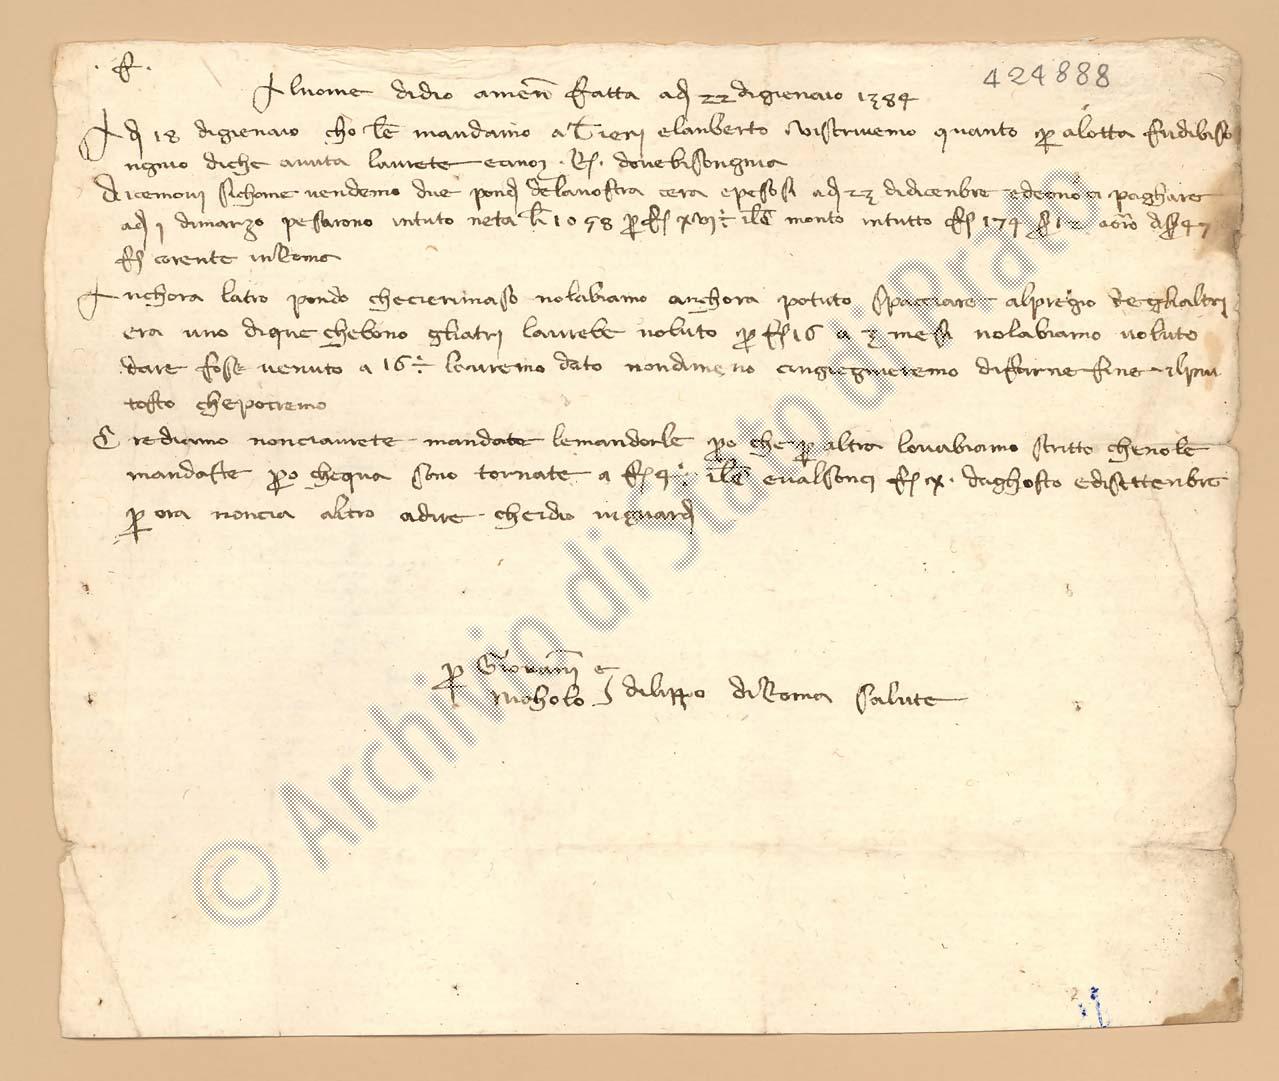 · F ·
424888
Al nome di dio amen fatta adì 22 di gienaio 1384
Adì 18 di gienaio cho le mandamo a Tieri e Lanberto vi scrivemo quanto per alotta fu di biso
ngnio di che avuta l'avrete e a noi R. dove bisongnia
Dicemovi sichome vendemo due pondi de la vostra cera e pesosi adì 23 di dicenbre e deono a paghare
adì 1 di marzo pesarono in tuto neta lb 1058 per f. XVI il C° montò in tutto f. 174 s. 12 oro a s. 47
f. corente in Roma
Anchora l'atro pondo che ci e rimaso no l'abiamo anchora potuto spaciare al pregio de gli altri
era uno di que che bono gli atri l'avrebe voluto per f. 16 a 3 mesi no l'abiamo voluto
dare fose venuto a 16 lo avremo dato nondimeno cingiegnieremo di farne fine il piu
tosto che potremo
Crediamo non ci avrete mandate le mandorle però che per altra lo v'abiamo scritto che no le
mandaste però che qua sono tornate a f. 4 il C° e valsonci f. IX d'aghosto e di settenbre
per ora non ci a altro a dire che idio vi guardi
per Giovanni e
Nicholo di Lippo di Roma salute
© Archivio di Stato di Prato